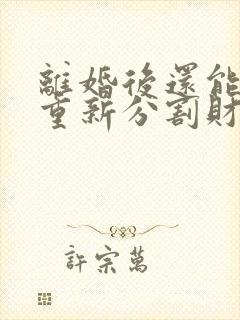 離婚後還能
重新分割財
許宗萬